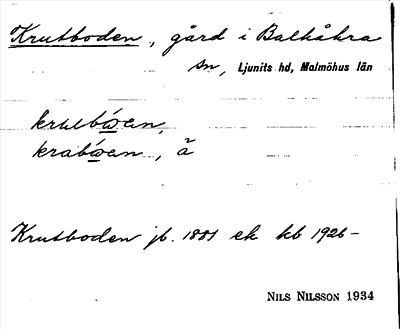 Krutboden, gård i Balkåkra
sn, Ljunits hd, Malmöhus län
Krutboden jb. 1881 ek kb 1926-
NILS NILSSON 1934